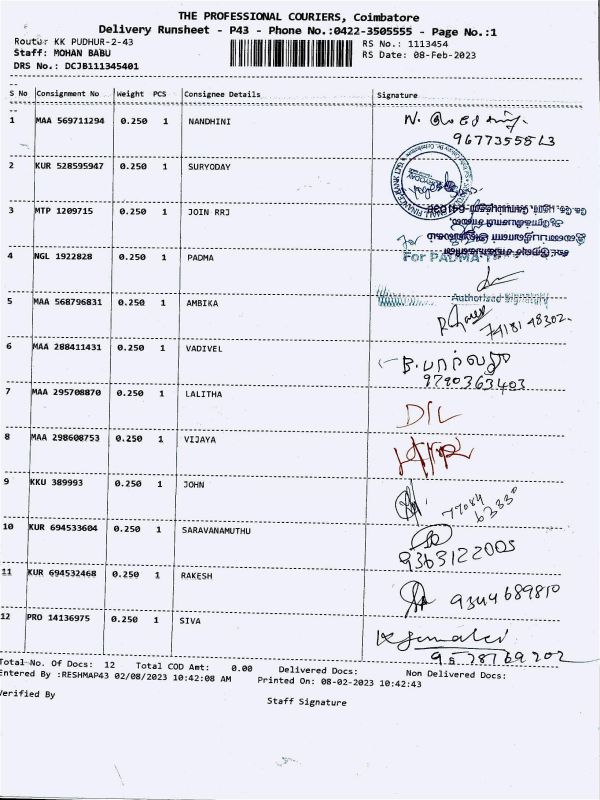 THE PROFESSIONAL COURIERS, Coimbatore
Delivery Runsheet - P43 - Phone No.:0422-3505555 - Page No.:1
Router KK PUDHUR-2-43
RS No.: 1113454
Staff: MOHAN BABU
RS Date: 08-Feb-2023
DRS No.: DCJB111345401
S No Consignment No Weight PCS Consignee Details Signature
1 MAA 569711294 0.250 1 NANDHINI
2 KUR 528595947 0.250 1 SURYODAY
3 MTP 1209715 0.250 1 JOIN RRJ
4 NGL 1922828 0.250 1 PADMA
For PADMA
Authorised Signatory
5 MAA 568796831 0.250 1 AMBIKA
74181 48302
6 MAA 288411431 0.250 1 VADIVEL
9790363403
7 MAA 295708870 0.250 1 LALITHA
D/L
8 MAA 298608753 0.250 1 VIJAYA
9 KKU 389993 0.250 1 JOHN
77084
63330
10 KUR 694533604 0.250 1 SARAVANAMUTHU
9363122005
11 KUR 694532468 0.250 1 RAKESH
9344689810
12 PRO 14136975 0.250 1 SIVA
Total No. Of Docs: 12 Total COD Amt: 0.00 Delivered Docs: Non Delivered Docs:
Entered By :RESHMAP43 02/08/2023 10:42:08 AM Printed On: 08-02-2023 10:42:43
Verified By
Staff Signature